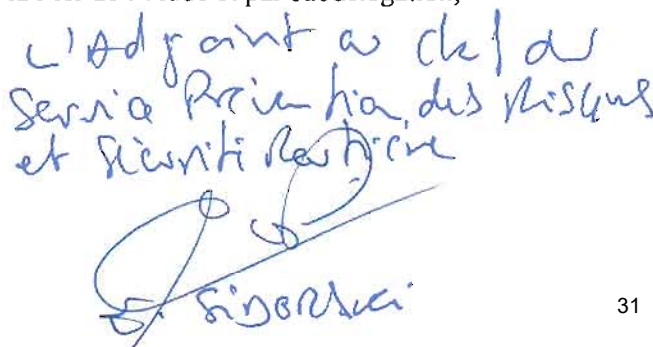 L'Adjoint au chef du
Service Prévention des Risques
et Sécurité Routière
SIDORSKI
31